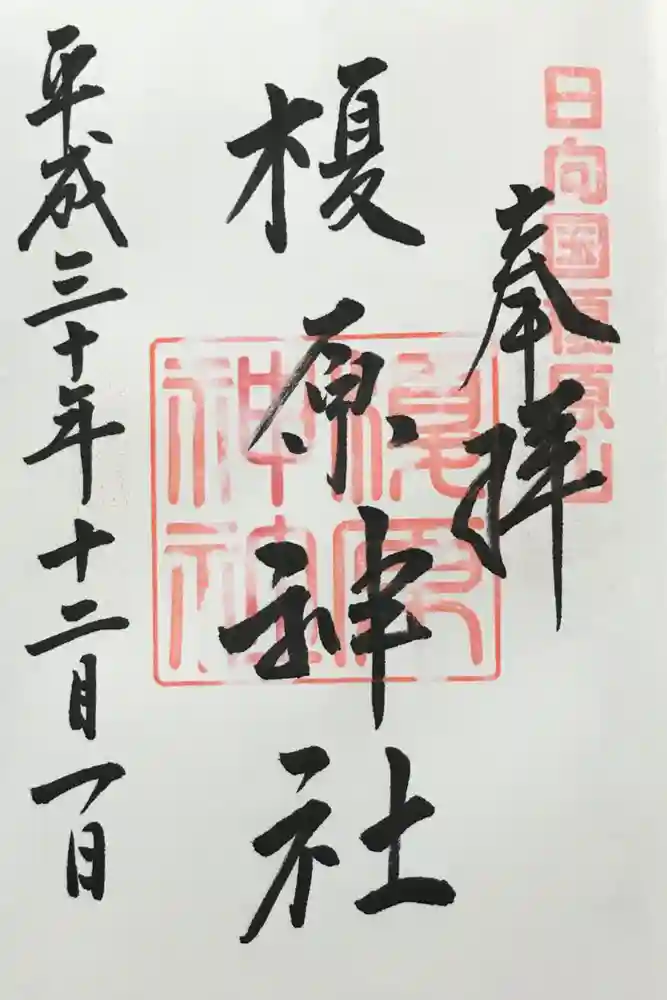 日向国榎原山
奉拝
榎原神社
榎原神社
平成三十年十二月一日